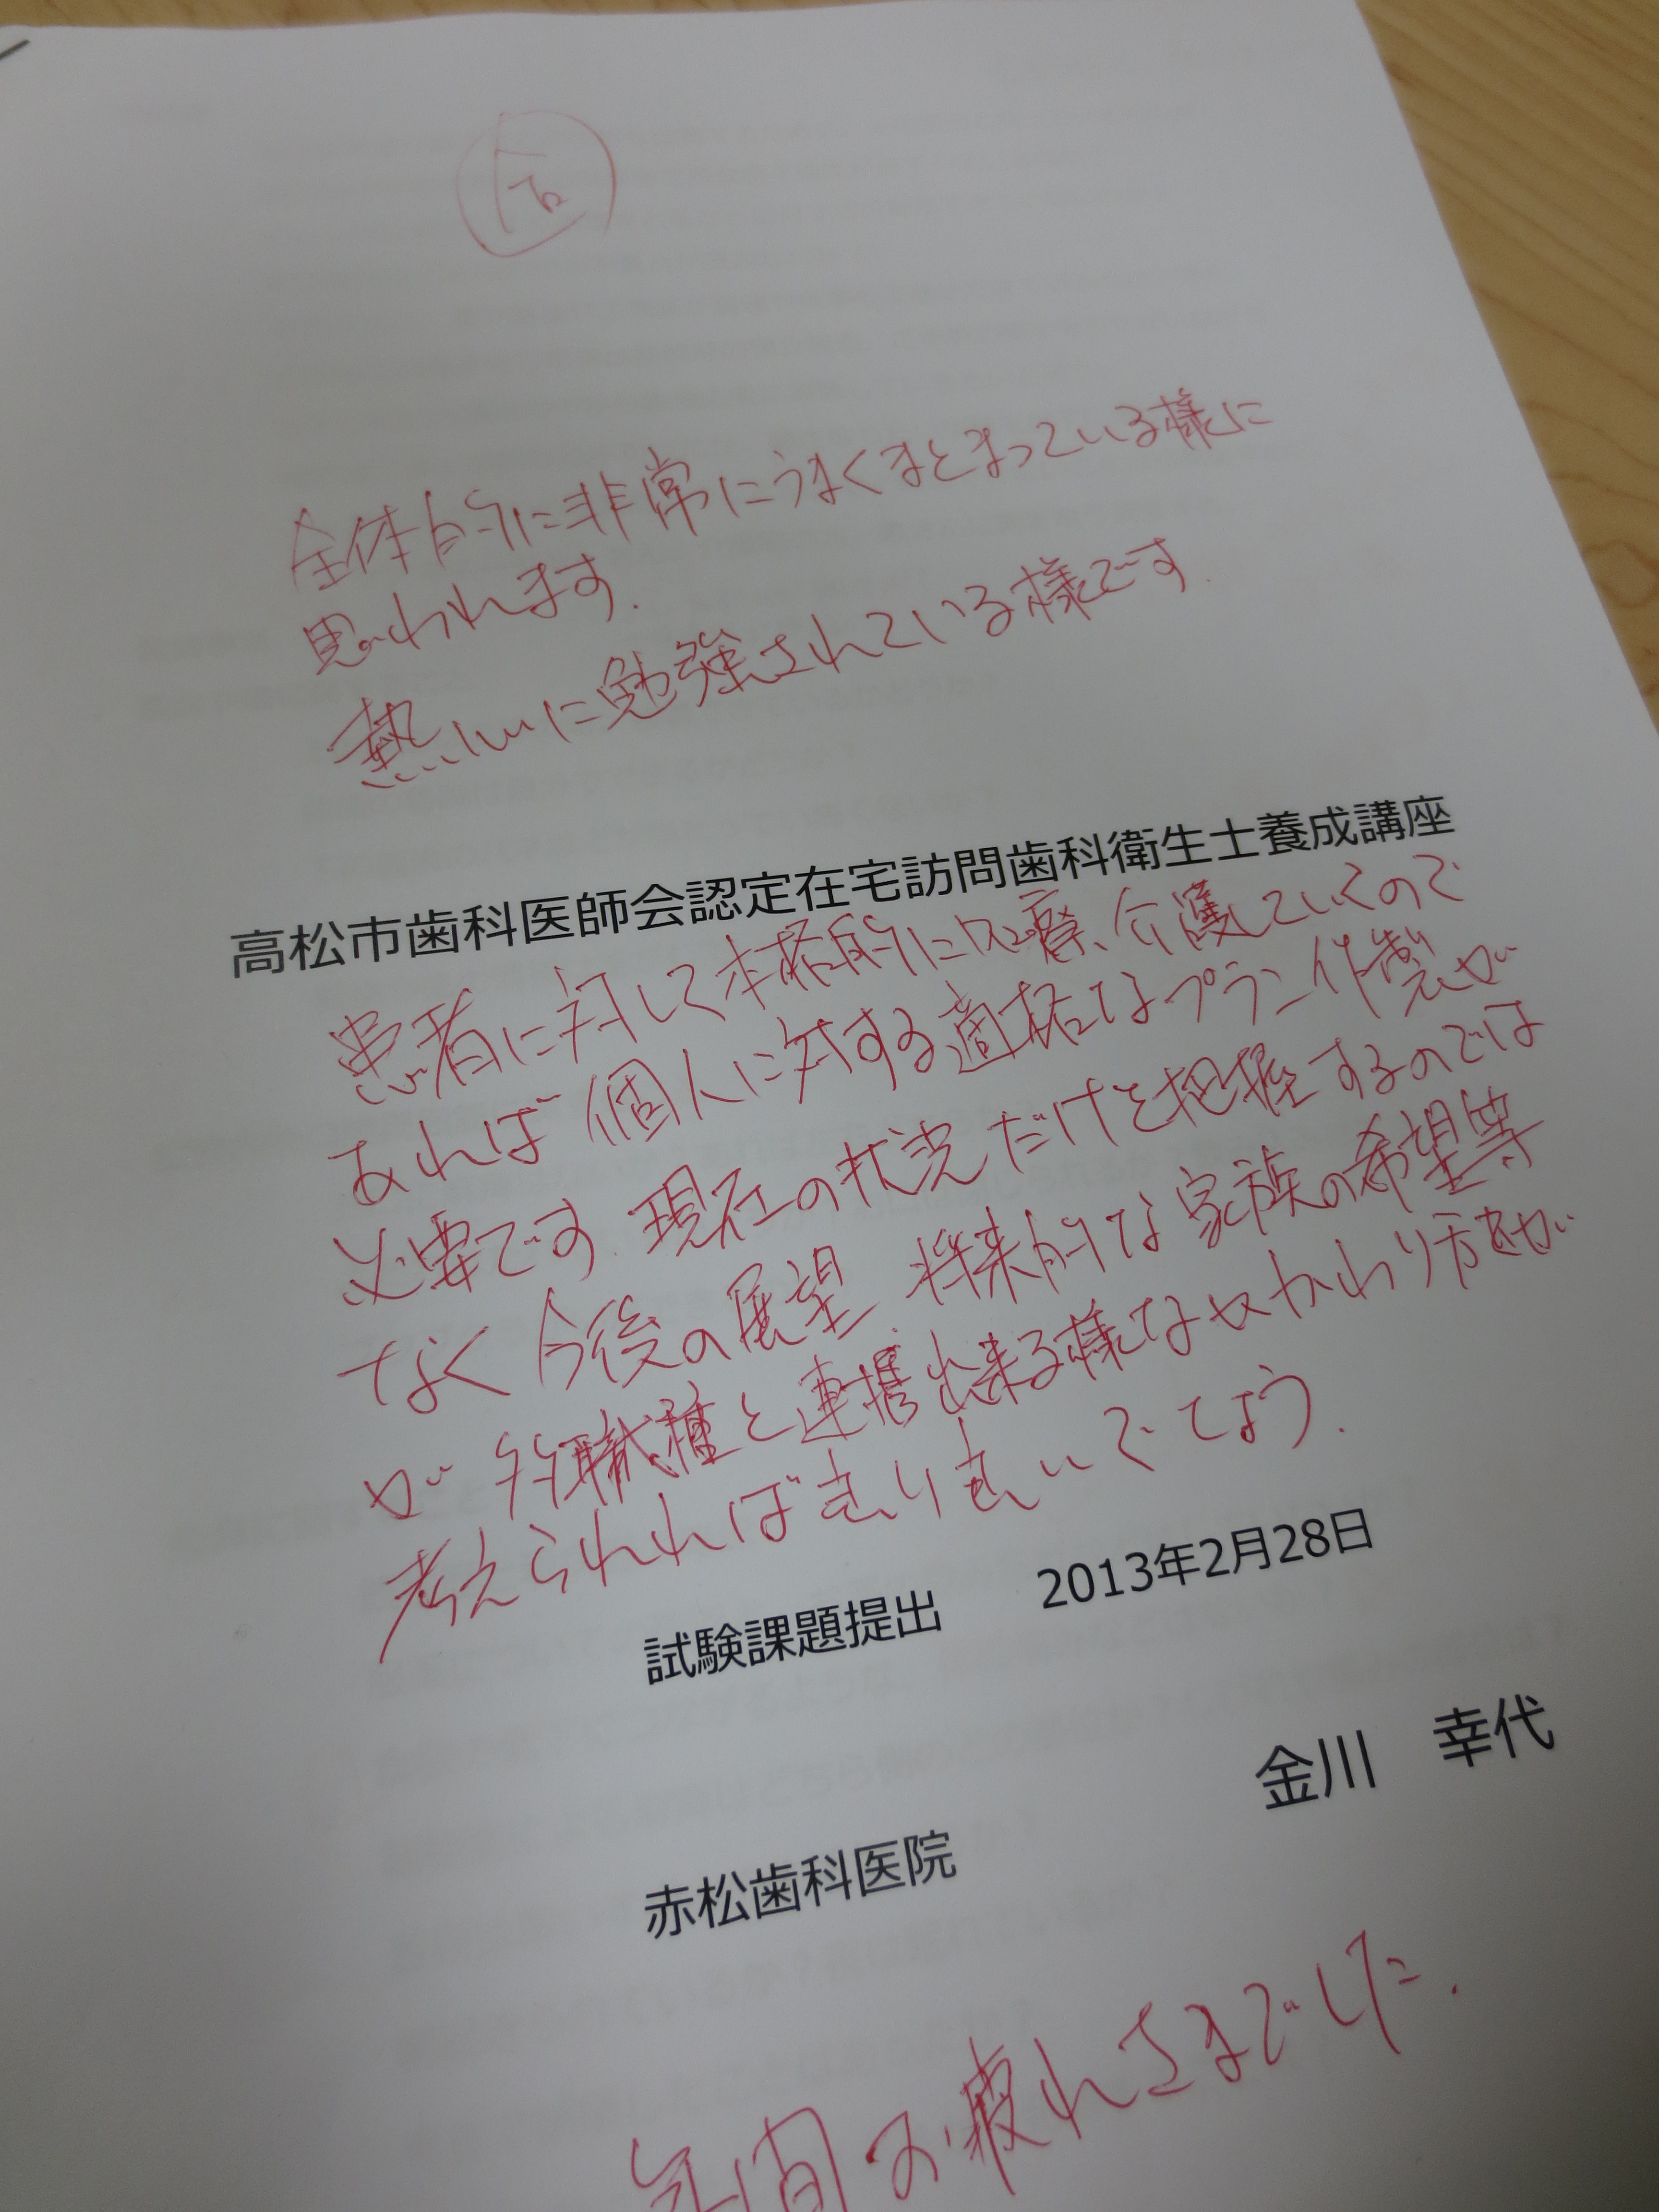 合
全体的に非常にうまくまとまっている様に
思われます.
熱心に勉強されている様です.
高松市歯科医師会認定在宅訪問歯科衛生士養成講座
患者に対して本格的に口腔、介護していくので
あれば個人に対する適格なプラン作製が
必要です.現在の状況だけを把握するのでは
なく今後の展望.将来的な家族の希望等
が多職種と連携出来る様なかかわり方が
考えられればよりよいでしょう.
試験課題提出 2013年2月28日
金川 幸代
赤松歯科医院
年間お疲れさまでした.